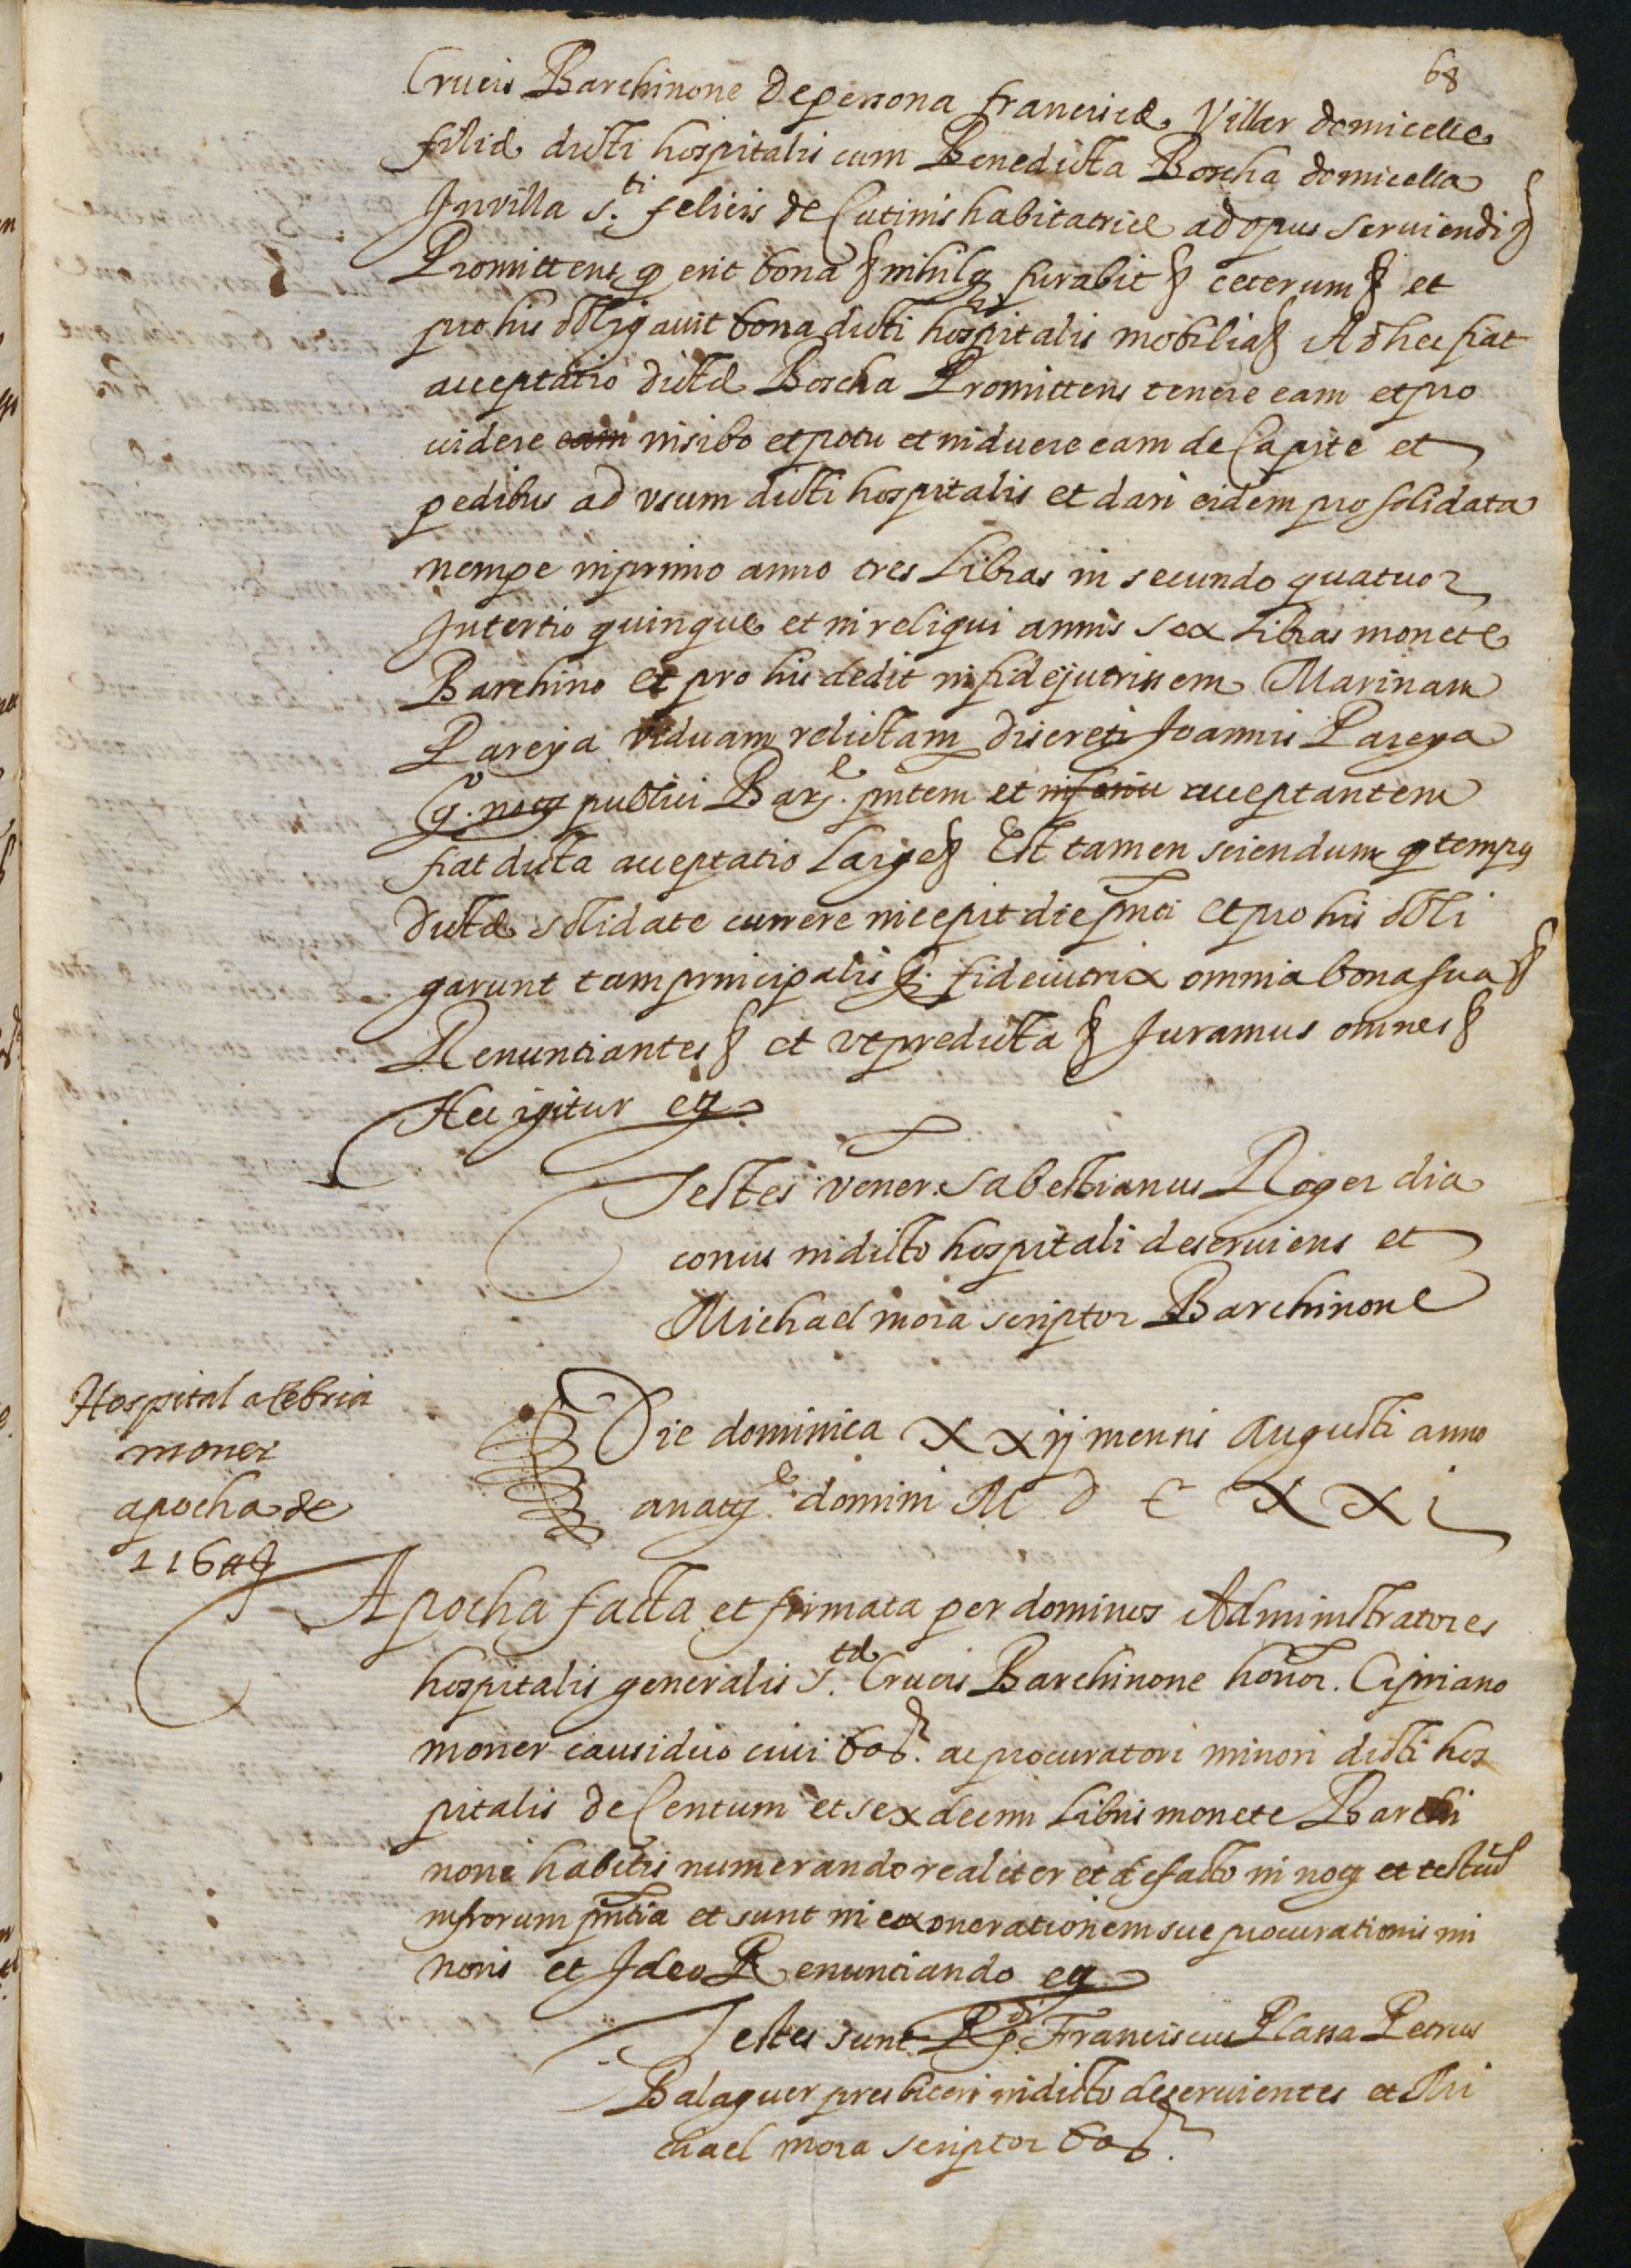 68
Crucis Barchinone de persona francisce Villar domicelle
filie dicti hospitalis cum Benedicta Boscha domicella
In villa s.ti felicis de Cutinis habitatrice ad opus serviendi &
Promittens q erit bona & nihilq furabit & ceterum & et
pro his obligavit bona dicti hospitalis mobilia & Ad hec fiat
acceptatio dicte Boscha Promittens tenere eam et pro
videre eam in sibo et potu et induere eam de Capite et
pedibus ad usum dicti hospitalis et dari eidem pro solidata
nempe in primo anno tres libras in secundo quatuor
In tertio quinque et in reliqui annis sex libras monete
Barchino et pro his dedit in fidejutricem Marinam
Pareya viduam relictam discreti Joannis Pareya
q.o noty publici Bar.e pntem et acceptantem
fiat dicta acceptatio large & Est tamen sciendum q tempus
dicte solidate currere incepit die pnti et pro his obli
garunt tam principalis q. fideiutrix omnia bona sua &
Renunciantes & et ut predicta & Juramus omnes &
Hec igitur eg
Testes vener. Sabestianus Roger dia
conus in dicto hospitali deserviens et
Michael mora scriptor Barchinone
Hospital a Cebria
moner
apocha de
116 ll
Die dominica XXij mensis Augusti anno
anaty.e domini M D C XXi
Apocha facta et firmata per dominos Administratores
hospitalis generalis S.te Crucis Barchinone honor. Cipriano
moner causidico civi bar. ac procuratori minori dicti hos
pitalis de Centum et sexdecim libris monete Barchi
none habitis numerando realiter et de facto in noty et testium
infrorum pntia et sunt in exonerationem sue procurationis mi
noris et Ideo Renunciando eg
Testes sunt R.di Franciscus Plassa Petrus
Balaguer presbiteri in dicto deservientes et Mi
chael mora scriptor bar.